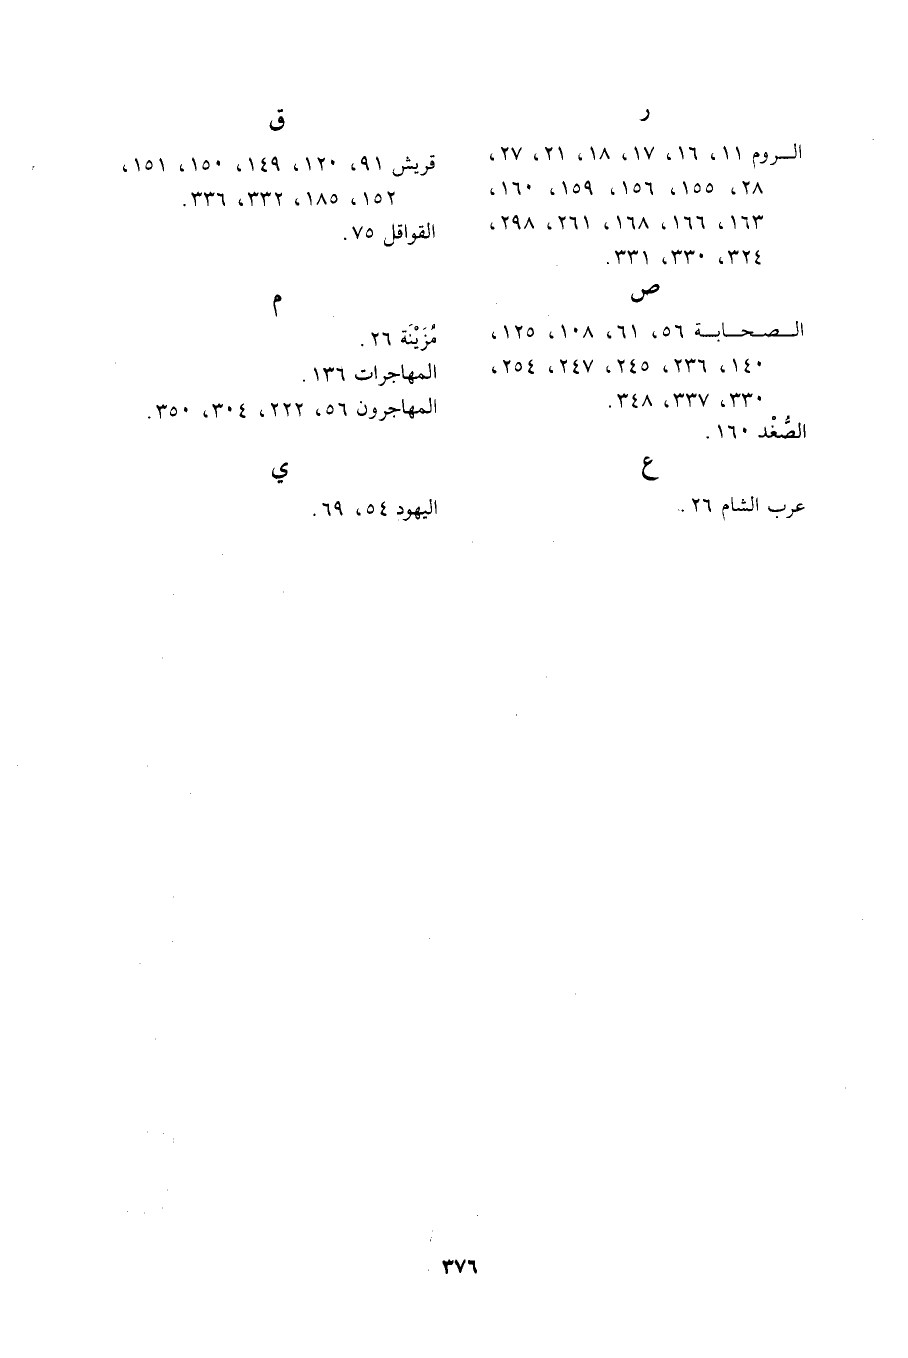 ر
الروم ١١، ١٦، ١٧، ١٨، ٢١، ٢٧،
٢٨، ١٥٥، ١٥٦، ١٥٩، ١٦٠،
١٦٣، ١٦٦، ١٦٨، ٢٦١، ٢٩٨،
٣٢٤، ٣٣٠، ٣٣١.
ص
الصحابة ٥٦، ٦١، ١٠٨، ١٢٥،
١٤٠، ٢٣٦، ٢٤٥، ٢٤٧، ٢٥٤،
٣٣٠، ٣٣٧، ٣٤٨.
الصُّغْد ١٦٠.
ع
عرب الشام ٢٦.
ق
قريش ٩١، ١٢٠، ١٤٩، ١٥٠، ١٥١،
١٥٢، ١٨٥، ٣٣٢، ٣٣٦.
القواقل ٧٥.
م
مُزَيْنَة ٢٦.
المهاجرات ١٣٦.
المهاجرون ٥٦، ٢٢٢، ٣٠٤، ٣٥٠.
ي
اليهود ٥٤، ٦٩.
٣٧٦